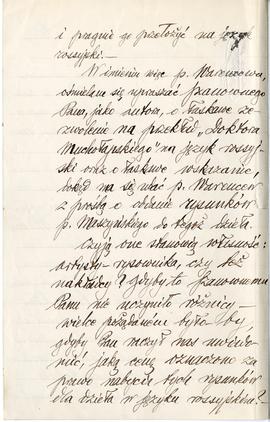 i pragnie go przełożyć na język
rossyjski.—
W imieniu więc p. Warencowa,
ośmielam się upraszać Szanownego
Pana, jako autora, o łaskawe ze-
zwolenie na przekład „Doktora
Muchołapskiego" na język rossyj-
ski oraz o łaskawe wskazanie,
dokąd ma się udać p. Warencow
z prośbą o oddanie rysunków
p. Maszyńskiego do tegoż dzieła.
Czyją one stanowią własność:
artysty-rysownika, czy też
nakładcy? Gdyby to Szanownemu
Panu nie uczyniło różnicy—
wielce pożądanem było by,
gdyby Pan raczył nas uwiado-
mić, jaką cenę oznaczono za
prawo nabycia tych rysunków
dla dzieła w języku rossyjskim?